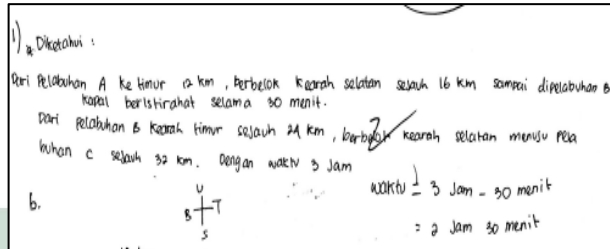 1) * Diketahui :
Dari Pelabuhan A ke timur 12 km, berbelok kearah selatan sejauh 16 km sampai dipelabuhan B
kapal beristirahat selama 30 menit.
Dari pelabuhan B kearah timur sejauh 24 km, berbelok kearah selatan menuju pela
buhan C sejauh 32 km. Dengan waktu 3 Jam
waktu = 3 Jam - 30 menit
= 2 Jam 30 menit
b.
U
B T
S